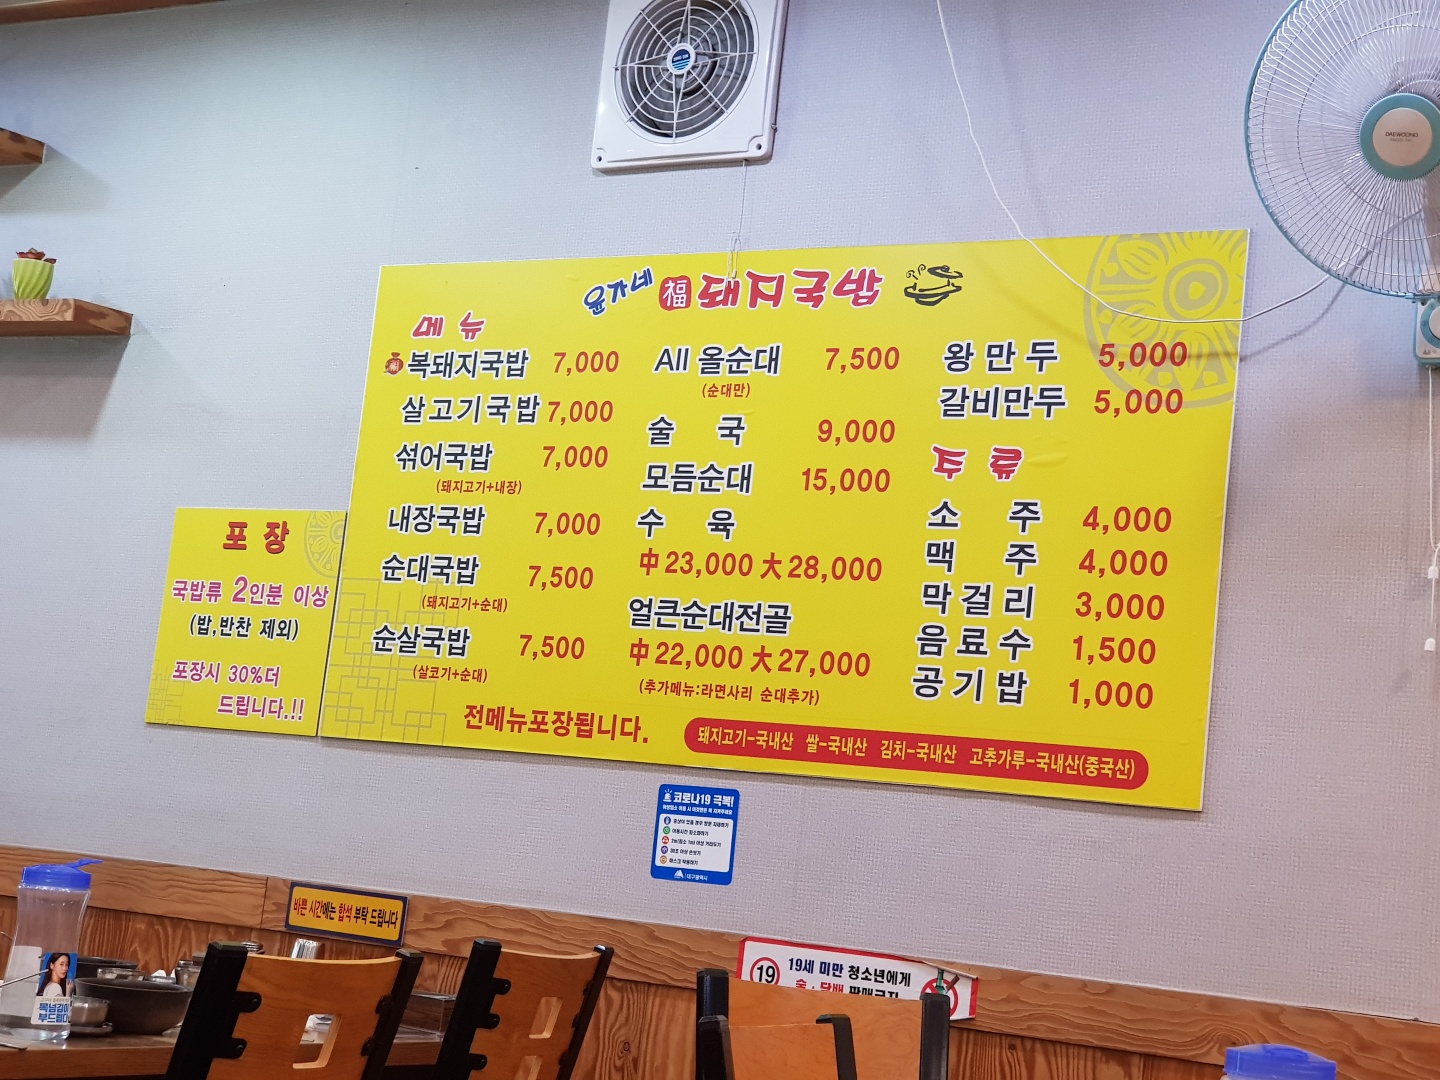 DAEWOONG
윤가네 福 돼지국밥
메뉴
복돼지국밥 7,000
살고기국밥 7,000
섞어국밥 7,000
(돼지고기+내장)
내장국밥 7,000
순대국밥 7,500
(돼지고기+순대)
순살국밥 7,500
(살코기+순대)
All 올순대 7,500
(순대만)
술국 9,000
모듬순대 15,000
수육
中 23,000 大 28,000
얼큰순대전골
中 22,000 大 27,000
(추가메뉴:라면사리 순대추가)
왕만두 5,000
갈비만두 5,000
주류
소주 4,000
맥주 4,000
막걸리 3,000
음료수 1,500
공기밥 1,000
전메뉴포장됩니다.
돼지고기-국내산 쌀-국내산 김치-국내산 고추가루-국내산(중국산)
포장
국밥류 2인분 이상
(밥,반찬 제외)
포장시 30%더
드립니다.!!
코로나19 극복!
대구광역시
바쁜 시간에는 합석 부탁 드립니다
19
19세 미만 청소년에게
술·담배 판매금지
목넘김이
부드럽다